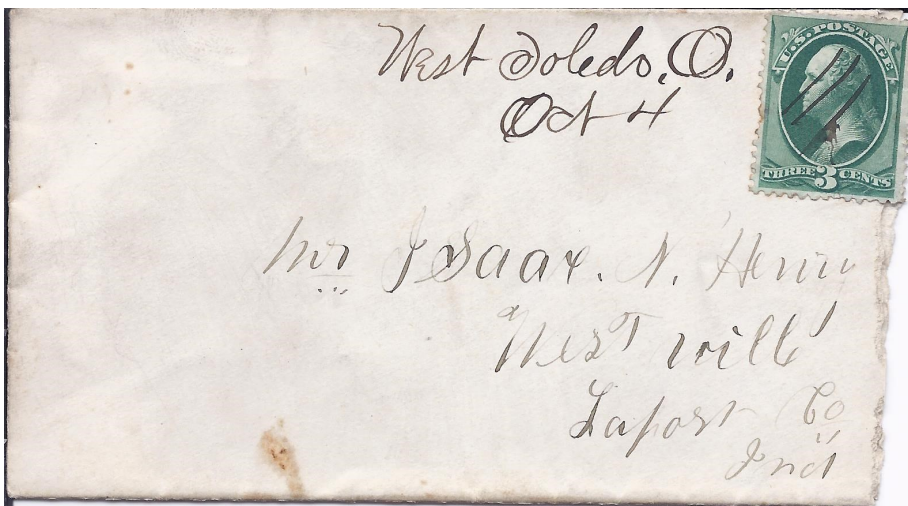 West Toledo, O.
Oct 4
U.S. POSTAGE
THREE 3 CENTS
Mr Isaax. N. Henry
West vill
Laport Co
Ind